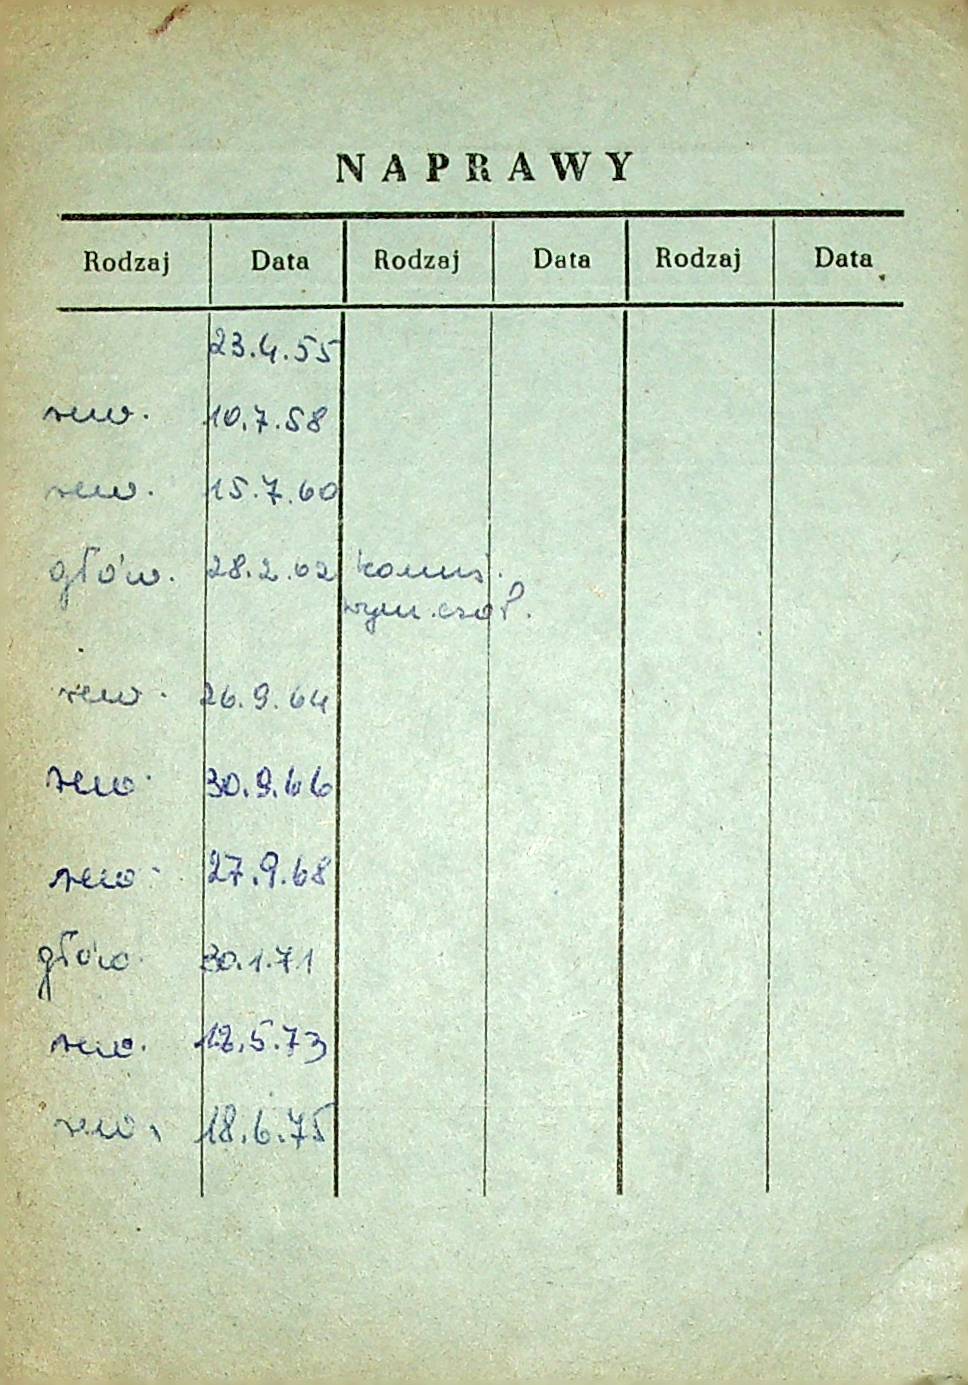 NAPRAWY
Rodzaj Data Rodzaj Data Rodzaj Data
23.4.55
rew. 10.7.58
rew. 15.7.60
głów. 28.2.62 komis.
wym. czoł.
rew. 26.9.64
rew. 30.9.66
rew. 27.9.68
głów. 30.1.71
rew. 12.5.73
rew. 18.6.75